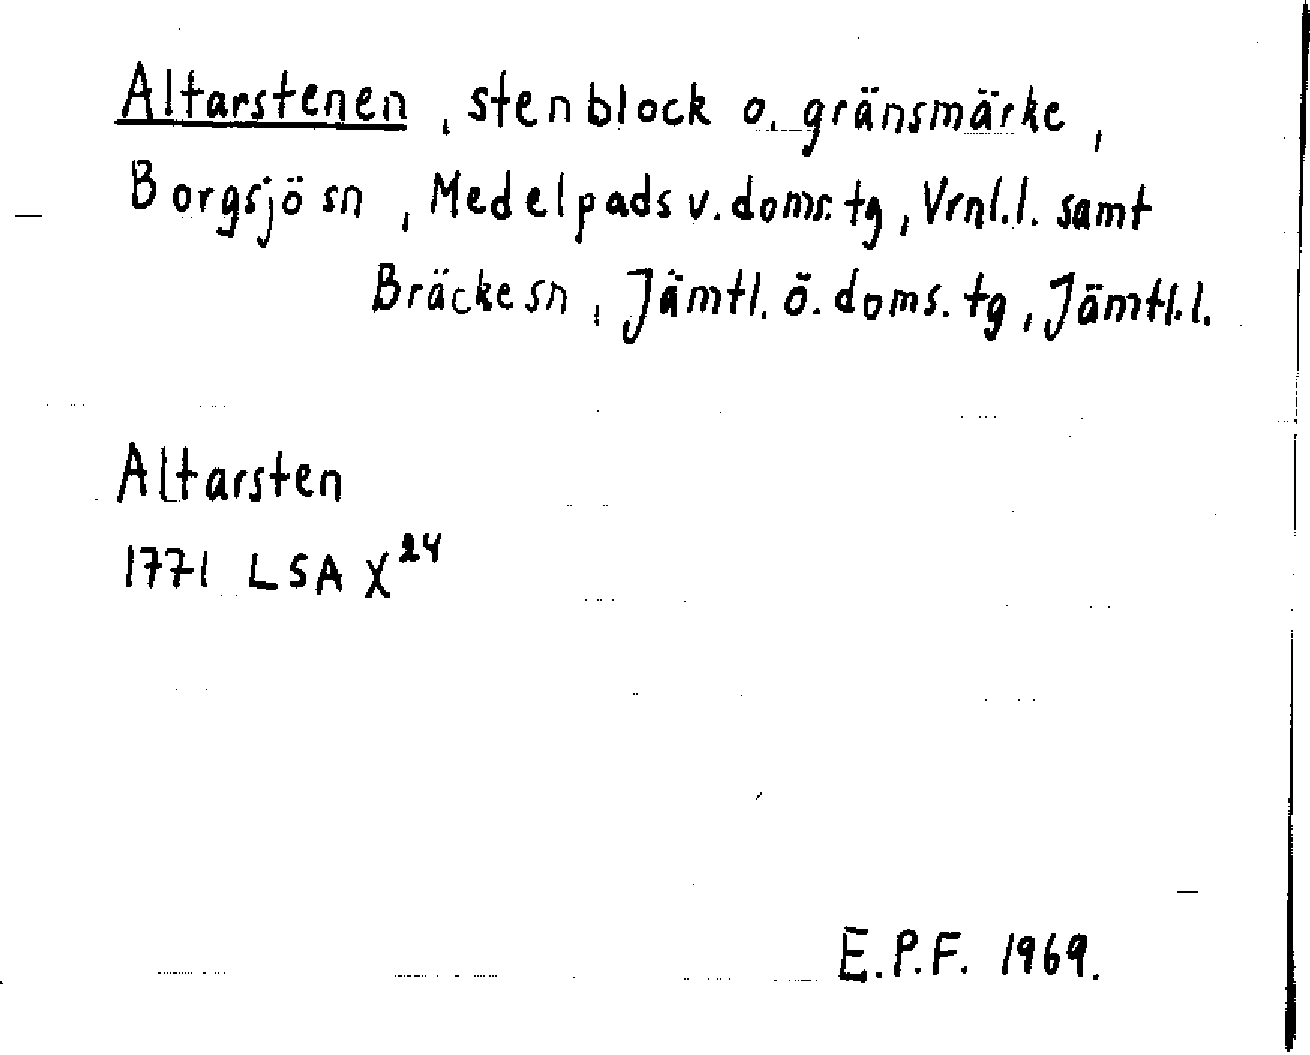 Altarstenen, stenblock o. gränsmärke,
Borgsjö sn, Medelpads v. doms. tg, Vrnl. l. samt
Bräcke sn, Jämtl. ö. doms. tg, Jämtl. l.
Altarsten
1771 LSA X²⁴
E.P.F. 1969.